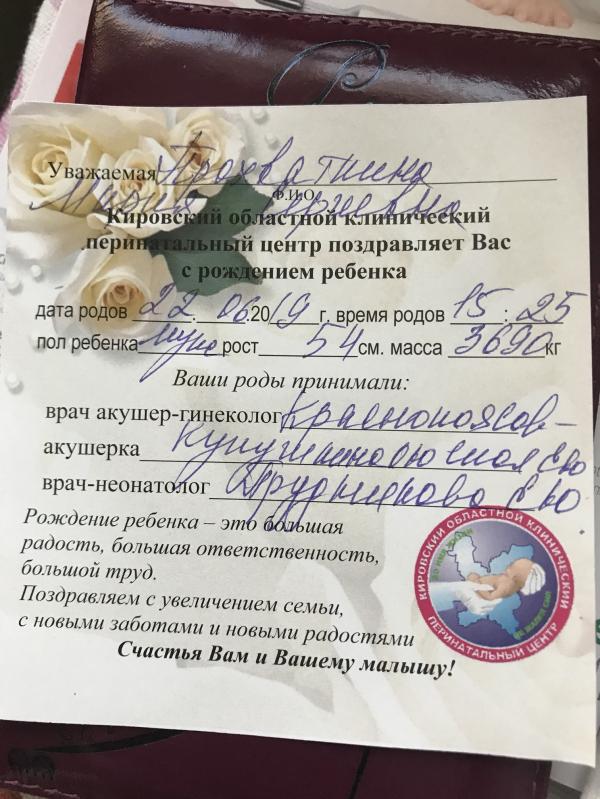 Уважаемая Прохватилина
Ф.И.О.
Мария
Кировский областной клинический
перинатальный центр поздравляет Вас
с рождением ребенка
дата родов 22. 06.2019 г. время родов 15 : 25
пол ребенка муж рост 54 см. масса 3690 кг
Ваши роды принимали:
врач акушер-гинеколог
акушерка
врач-неонатолог
Рождение ребенка – это большая
радость, большая ответственность,
большой труд.
Поздравляем с увеличением семьи,
с новыми заботами и новыми радостями
Счастья Вам и Вашему малышу!
КИРОВСКИЙ ОБЛАСТНОЙ КЛИНИЧЕСКИЙ
ПЕРИНАТАЛЬНЫЙ ЦЕНТР